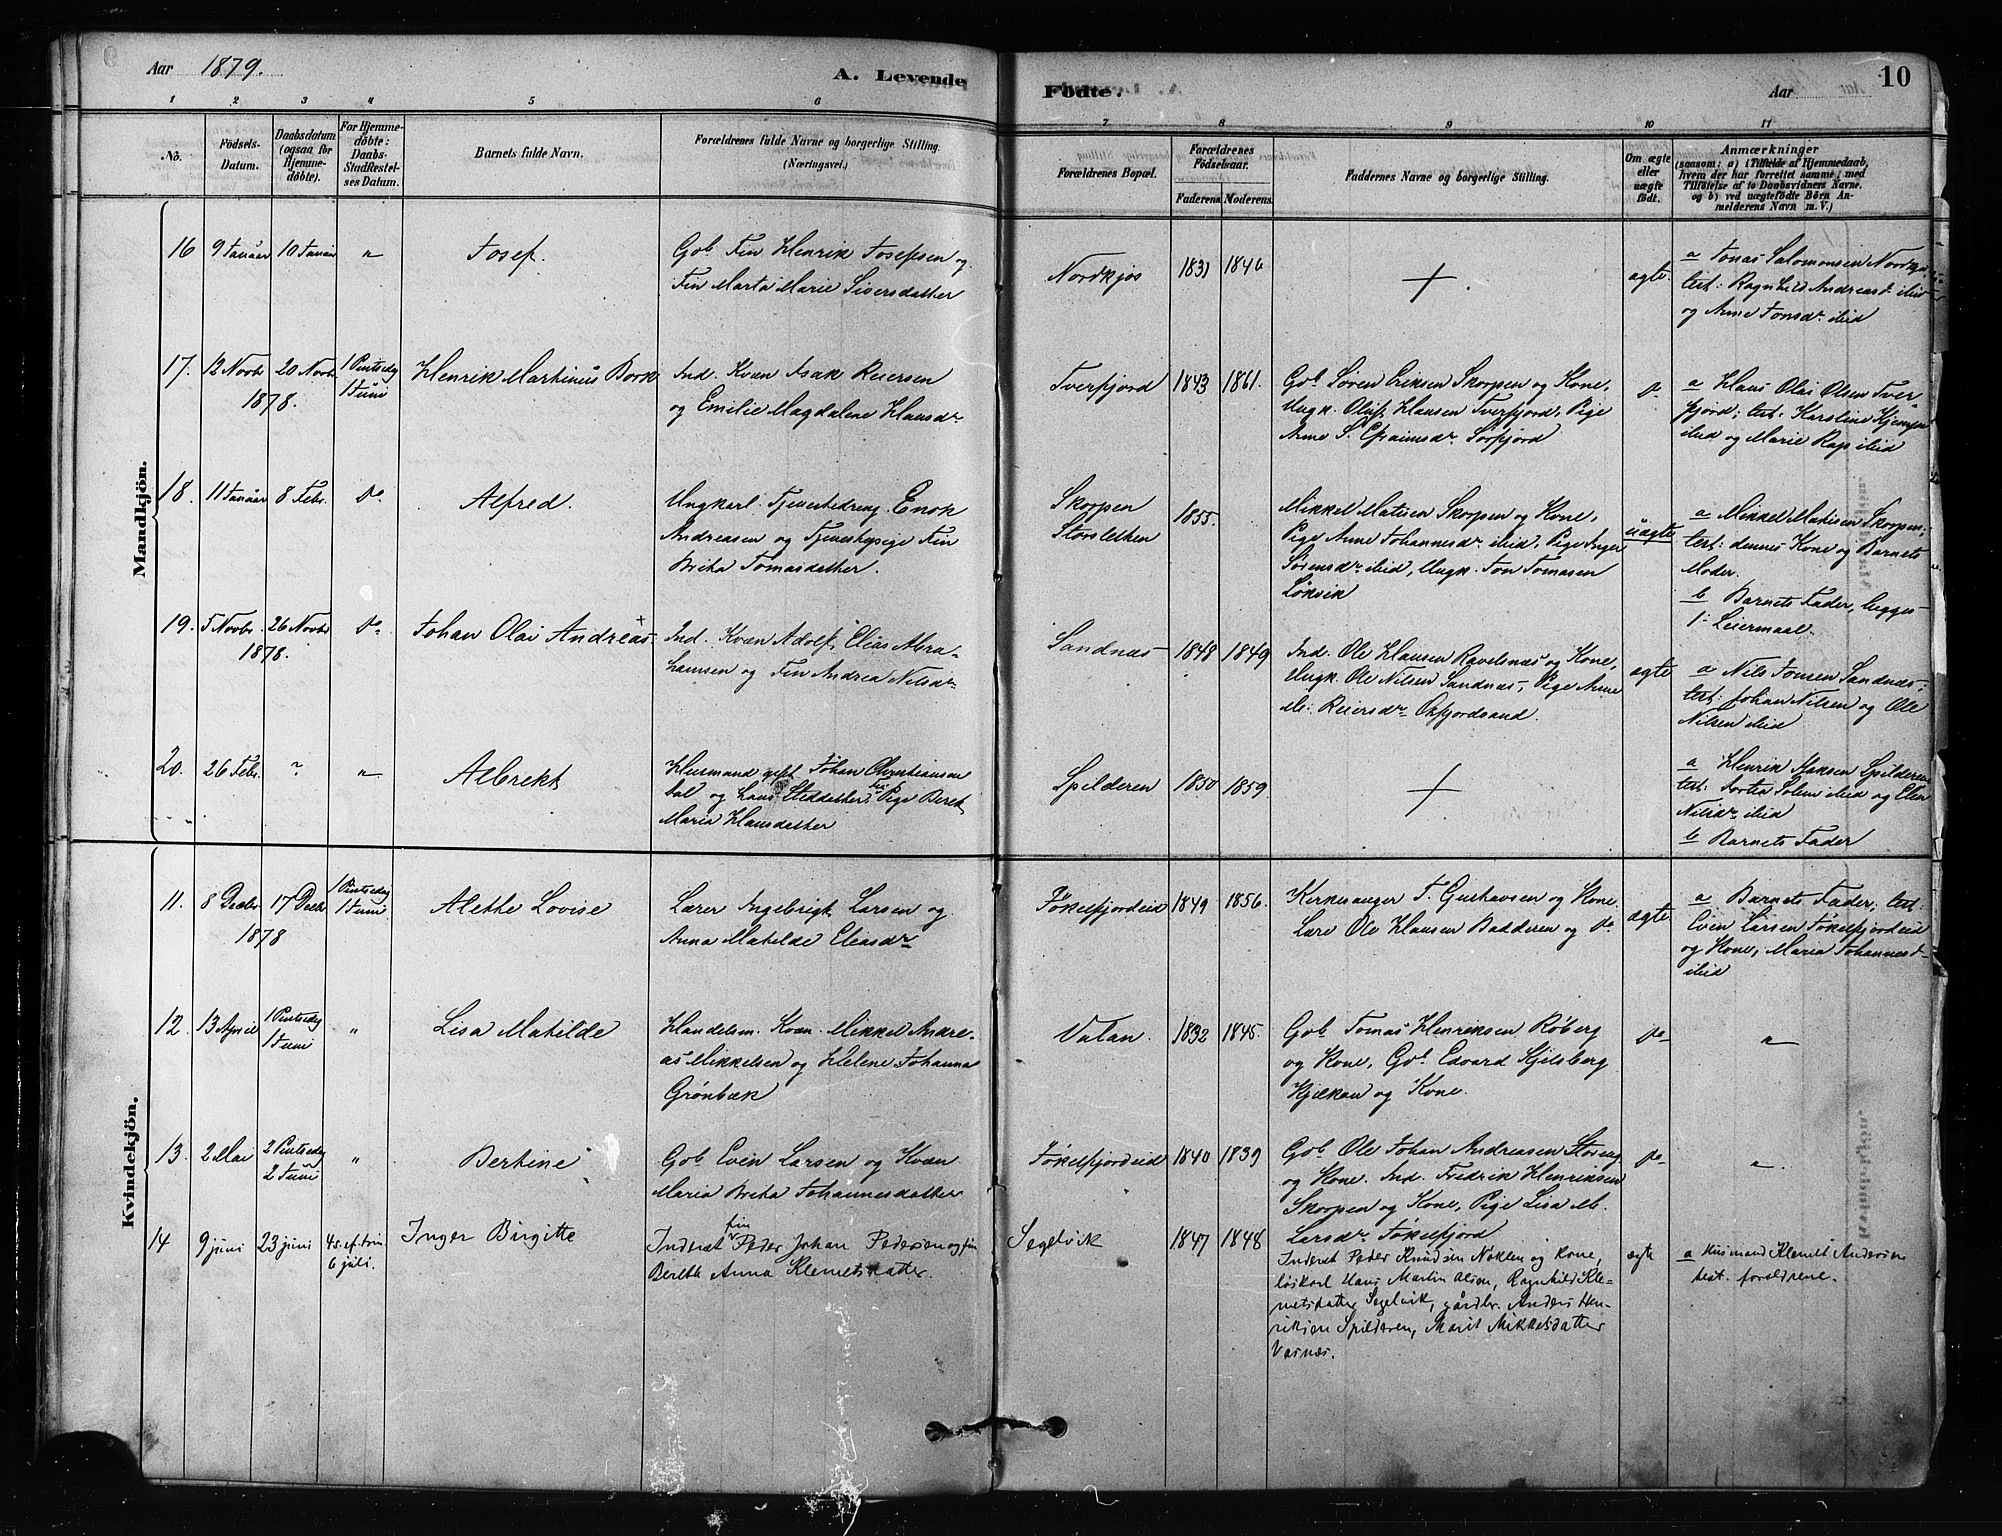 Aar 1879.
A. Levende
Födte.
Aar
10
1 2 3 4 5 6 7 8 9 10 11
No.
Födsels-
Datum.
Daabsdatum
(ogsaa for
Hjemme-
döbte).
For Hjemme-
döbte:
Daabs-
Stadfæstel-
ses Datum.
Barnets fulde Navn.
Forældrenes fulde Navne og borgerlige Stilling.
(Næringsvei.)
Forældrenes Bopæl.
Forældrenes
Födselsaar.
Faderens Moderens
Faddernes Navne og borgerlige Stilling.
Om ægte
eller
uægte
født.
Anmærkninger
(saasom: a) i Tilfælde af Hjemmedaab,
hvem der har forrettet samme, med
Tilføielse af to Daabsvidners Navne.
og b) ved uægtefödte Börn An-
melderens Navn m. V.)
Mandkjön.
16 9 Januar 10 Januar " Josef.
Gbr Fin Henrik Josefsen og
Fin Marta Marie Siversdatter
Nordkjos 1831 1846 + ægte.
a Jonas Salomonsen
test: Ragnhild Andreasd. ibid
og Anne Jonsdr ibid
17. 12 Novbr 20 Novbr 1 Pintsedag
1878. 1 Juni
Henrik Martinus Bork
Ind. Kvæn Isak Reiersen
og Emilie Magdalene Hansdr
Tverfjord 1843 1861.
Gbr Søren Eriksen Skorpen og Kone,
Ungk. Oluf Hansen Tverfjord, Pige
Anne S. Efraimsdr Sørfjord
do
a Hans Olai Olsen Tver-
fjord; test: Karoline
ibid og Marie Raps ibid
18. 11 Januar 8 Febr. do Alfred.
Ungkarl Tjenestedreng Enok
Andreasen og Tjenestepige Fin
Brita Tomasdatter.
Skorpen
Storsletten
1855.
Mikkel Matisen Skorpen og Kone,
Pige Anne Johannesdr ibid, Pige Inger
Sørensdr ibid, Ungk. Jon Tomasen
Løkvik
uægte
a Mikkel Matisen Skorpen;
test: dennes Kone og Barnets
Moder.
b Barnets Fader, begges
1. Leiermaal.
19. 5 Novbr. 26 Novbr do
1878.
Johan Olai Andreas +
Ind. Kvæn Adolf Elias Abra-
hamsen og Fin Andrea Nilsdr
Sandnæs 1848 1849
Ind. Ole Hansen Ravelsnæs og Kone,
Ungk. Ole Nilsen Sandnæs, Pige Anne
M. Reiersdr Oxfjordsand.
ægte
a Nils Jonsen Sandnæs,
test: Johan Nilsen og Ole
Nilsen ibid
20. 26 Febr. ? " Albrekt
Husmand gift Johan Christiansen
Fin Pige Beret
Maria Hansdatter
Spilderen 1850 1859. +
a Henrik Isaksen Spilderen
test: ibid og Elen
Nilsdr ibid
b Barnets Fader
Kvindekjön.
11. 8 Decbr 17 Decbr 1 Pintsedag
1878 1 Juni
Alethe Lovise
Lærer Ingebrigt Larsen og
Anna Matilde Eliasdr
Jøkelfjordeid 1849 1856.
Kirkesanger J. Gustavsen og Kone
Lære Ole Hansen Badderen og do
ægte
a Barnets Fader; test:
Even Larsen Jøkelfjordeid
og Kone; Maria Johannesd.
ibid
12. 13 April 1 Pintsedag
1 Juni
" Lisa Matilde
Handelsm. Kvæn Mikkel Andre-
as Mikkelsen og Helene Johanna
Grønbæk
Valan. 1832 1845.
Gbr Tomas Henriksen Røberg
og Kone, Gbr. Edvard Kjelsberg
Kjækan og Kone.
do "
13. 2 Mai 2 Pintsedag
2 Juni
" Bertine
Gbr Even Larsen og Kvæn
Maria Brita Johannesdatter
Jøkelfjordeid 1840 1839
Gbr Ole Johan Andreasen Storeng
og Kone. Ind. Fredrik Henriksen
Skorpen og Kone, Pige Lisa M.
Larsdr Jøkelfjord
do "
14 9 juni 23 juni 4 s. ef. trin
6 juli.
Inger Birgitte
Inderst fin Peder Johan Pedersen og fin
Bereth Anna Klemetsdatter.
Segelvik 1847 1848
Inderst Peder Knudsen Noklen og kone,
løskarl Hans Martin Olsen, Ragnhild Kle-
metsdatter Segelvik, gårdbr. Anders Hen-
riksen Spilderen, Marit Mikkelsdatter
Vasnæs.
ægte
a Husmand Klemet Andersen
test. forældrene.